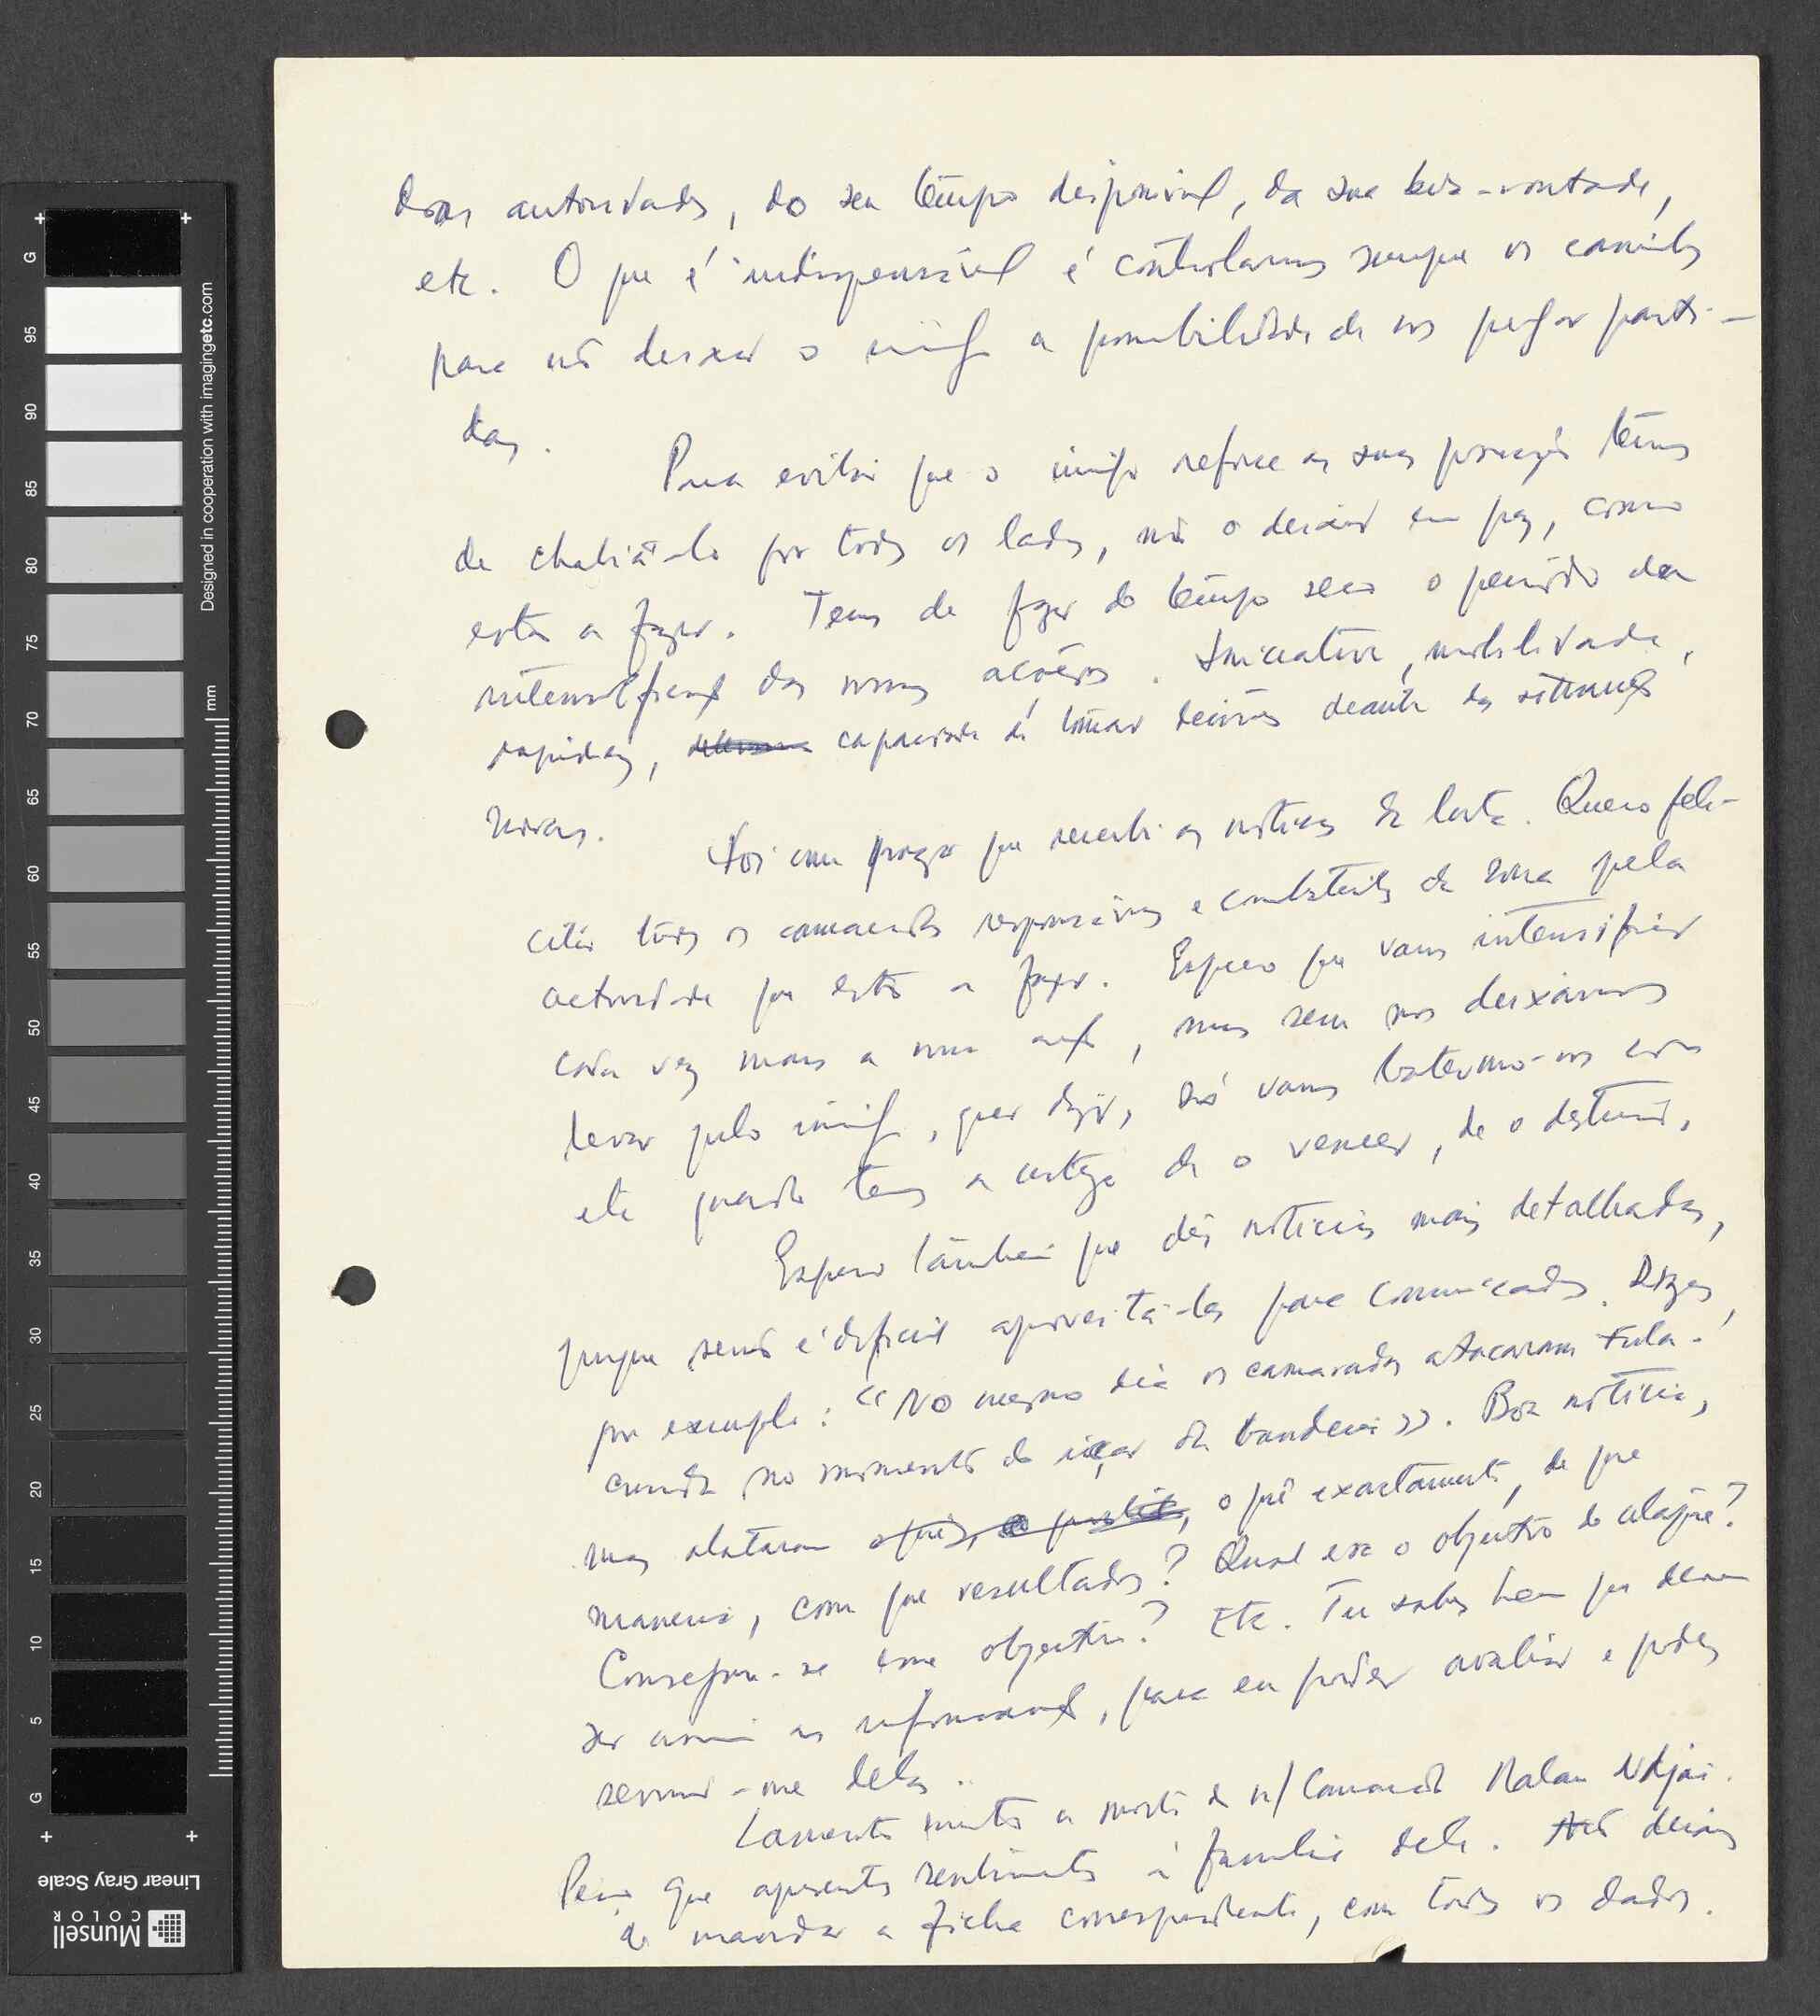 autoridades, do seu tempo disponível, da sua boa-vontade,
etc. O que é indispensável é controlarmos sempre os caminhos
para não deixar o inimigo a possibilidade de nos pregar parti-
das.
Para evitar que o inimigo reforce as suas posições temos
de chateá-lo por todos os lados, não o deixar em paz, como
estão a fazer. Temos de fazer do tempo seco o período da
intensificação das nossas acções. Iniciativa, mobilidade,
rapidez, capacidade de tomar decisões deante das situações
novas.
Foi com prazer que recebi as notícias da luta. Quero feli-
citar todos os camaradas responsáveis e combatentes da zona pela
actividade que estão a fazer. Espero que vamos intensificar
cada vez mais a nossa acção, mas sem nos deixarmos
levar pelo inimigo, quer dizer, só vamos batermo-nos com
ele quando temos a certeza de o vencer, de o destruir.
Espero também que dês notícias mais detalhadas,
porque senão é difícil aproveitá-las para comunicados. Dizes,
por exemplo: "No mesmo dia os camaradas atacaram Fula-
cunda no momento do içar da bandeira». Boa notícia,
mas atacaram o quê exactamente, de que
maneira, com que resultados? Qual era o objectivo do ataque?
Conseguiu-se esse objectivo? Etc. Tu sabes bem que devem
ser assim as informações, para eu poder avaliar e poder
servir-me delas.
Lamento muito a morte do n/ Camarada Malan Ndjai.
Peço que apresentes sentimentos à família dele. Não deixes
de mandar a ficha correspondente, com todos os dados.
Designed in cooperation with imagingetc.com
mm
G 95 90 85 80 75 70 65 60 55 50 45 40 35 30 25 20 15 10 5 G
Linear Gray Scale
Munsell
COLOR